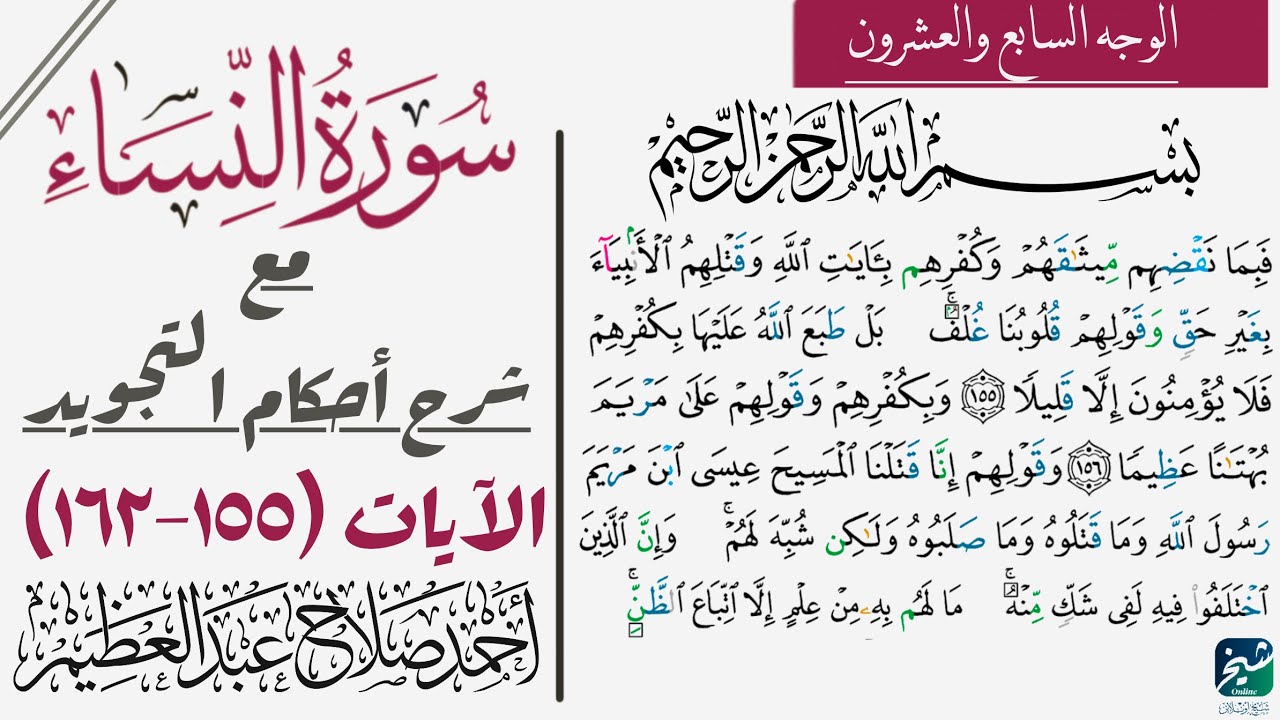 الوجه السابع والعشرون
بِسْمِ اللَّهِ الرَّحْمَٰنِ الرَّحِيمِ
فَبِمَا نَقْضِهِم مِّيثَٰقَهُمْ وَكُفْرِهِم بِـَٔايَٰتِ ٱللَّهِ وَقَتْلِهِمُ ٱلْأَنۢبِيَآءَ
بِغَيْرِ حَقٍّ وَقَوْلِهِمْ قُلُوبُنَا غُلْفٌۢ ۚ بَلْ طَبَعَ ٱللَّهُ عَلَيْهَا بِكُفْرِهِمْ
فَلَا يُؤْمِنُونَ إِلَّا قَلِيلًا ١٥٥ وَبِكُفْرِهِمْ وَقَوْلِهِمْ عَلَىٰ مَرْيَمَ
بُهْتَٰنًا عَظِيمًا ١٥٦ وَقَوْلِهِمْ إِنَّا قَتَلْنَا ٱلْمَسِيحَ عِيسَى ٱبْنَ مَرْيَمَ
رَسُولَ ٱللَّهِ وَمَا قَتَلُوهُ وَمَا صَلَبُوهُ وَلَٰكِن شُبِّهَ لَهُمْ ۚ وَإِنَّ ٱلَّذِينَ
ٱخْتَلَفُوا۟ فِيهِ لَفِى شَكٍّ مِّنْهُ ۚ مَا لَهُم بِهِۦ مِنْ عِلْمٍ إِلَّا ٱتِّبَاعَ ٱلظَّنِّ ۚ
سُورَةُ النِّسَاءِ
مع
شرح أحكام التجويد
الآيات (١٥٥-١٦٢)
أحمد صلاح عبد العظيم
شيخ
Online
شيخ أونلاين